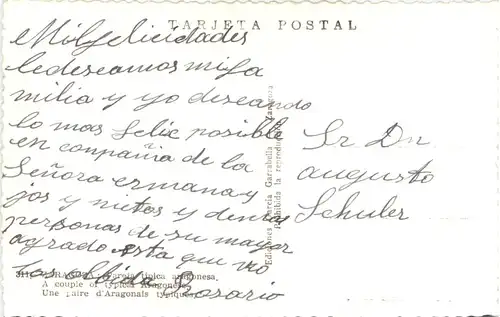 TARJETA POSTAL
Mil felicidades
le deseamos mi fa
milia y yo deseando
lo mas feliz posible
en conpañia de la
Señora ermana y
jos y nietos y demas
personas de su mayor
agrado esta que no
los olbida Rosario
Sr Dn
augusto
Schuler
Ediciones García Garrabella Zaragoza
Prohibida la reproducción
típica aragonesa.
A couple of typical Aragonese
Une paire d'Aragonais typiques